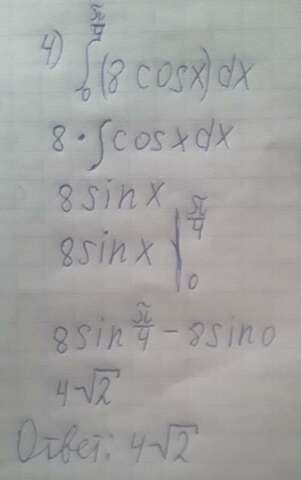 4) ∫₀^(π/4) (8 cosx) dx
8 · ∫ cosxdx
8 sin x
8 sin x |₀^(π/4)
8 sin π/4 - 8 sin 0
4√2
Ответ: 4√2